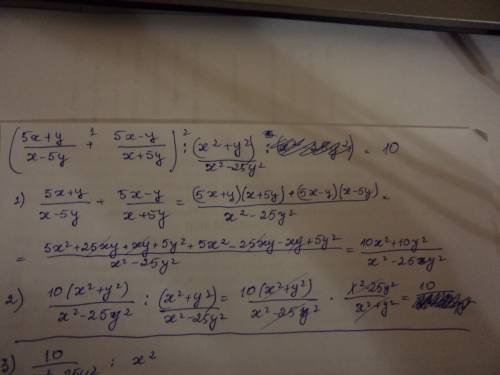 ( (5x+y)/(x-5y) +¹ (5x-y)/(x+5y) ) :² (x²+y²)/(x²-25y²) = 10
1) (5x+y)/(x-5y) + (5x-y)/(x+5y) = ((5x+y)(x+5y)+(5x-y)(x-5y))/(x²-25y²) =
= (5x²+25xy+xy+5y²+5x²-25xy-xy+5y²)/(x²-25y²) = (10x²+10y²)/(x²-25y²)
2) 10(x²+y²)/(x²-25y²) : (x²+y²)/(x²-25y²) = 10(x²+y²)/(x²-25y²) · (x²-25y²)/(x²+y²) = 10
3) 10/(x²-25y²) : x²